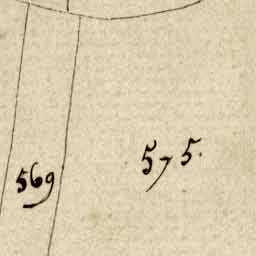 575.
569